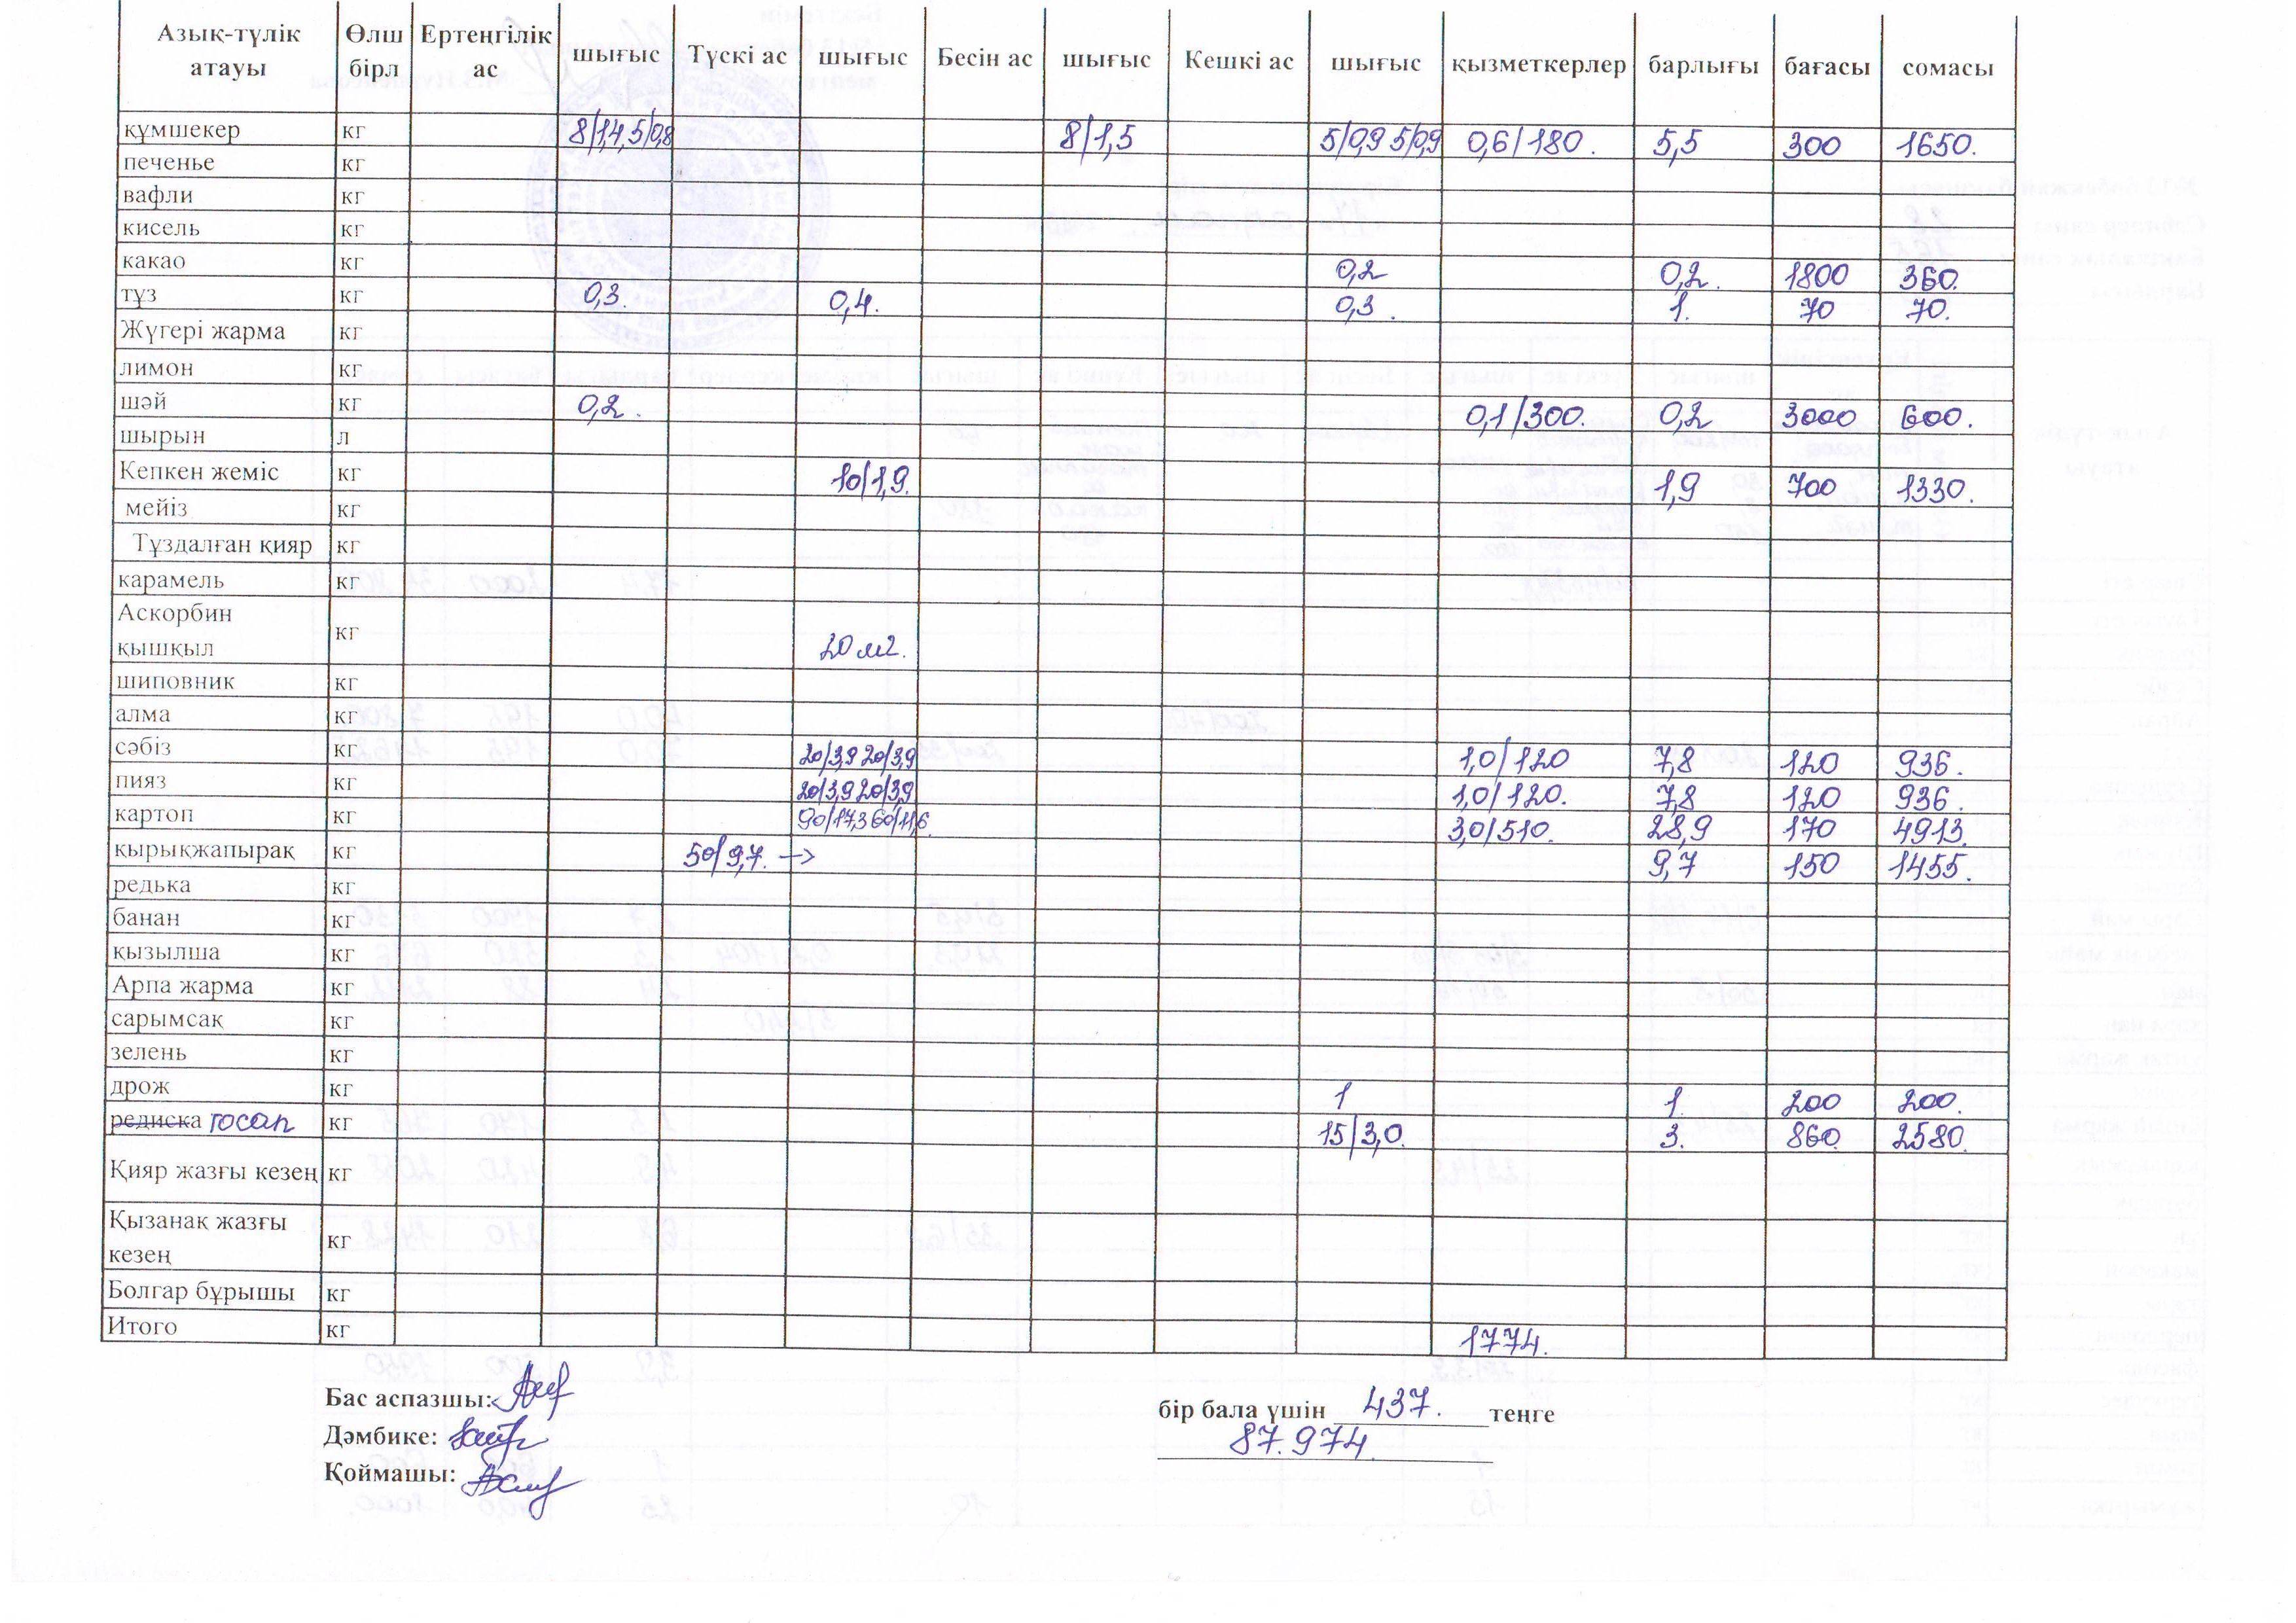 Азық-түлік атауы Өлш бірл Ертеңгілік ас шығыс Түскі ас шығыс Бесін ас шығыс Кешкі ас шығыс қызметкерлер барлығы бағасы сомасы
құмшекер кг 8/1,4,5/0,8 8/1,5 5/0,9 5/0,9 0,6/180. 5,5 300 1650.
печенье кг
вафли кг
кисель кг
какао кг 0,2 0,2. 1800 360.
тұз кг 0,3. 0,4. 0,3. 1. 70 70.
Жүгері жарма кг
лимон кг
шәй кг 0,2. 0,1/300. 0,2 3000 600.
шырын л
Кепкен жеміс кг 10/1,9. 1,9 700 1330.
мейіз кг
Тұздалған қияр кг
карамель кг
Аскорбин қышқыл кг 20 мг.
шиповник кг
алма кг
сәбіз кг 20/3,9 20/3,9 1,0/120 7,8 120 936.
пияз кг 20/3,9 20/3,9 1,0/120. 7,8 120 936.
картоп кг 90/17,3 60/11,6. 3,0/510. 28,9 170 4913.
қырықжапырақ кг 50/9,7. → 9,7 150 1455.
редька кг
банан кг
қызылша кг
Арпа жарма кг
сарымсақ кг
зелень кг
дрож кг 1 1. 200 200.
редиска тосап кг 15/3,0. 3. 860. 2580.
Қияр жазғы кезең кг
Қызанақ жазғы кезең кг
Болгар бұрышы кг
Итого кг 1774.
Бас аспазшы:
бір бала үшін 437. теңге
Дәмбике:
87.974.
Қоймашы: